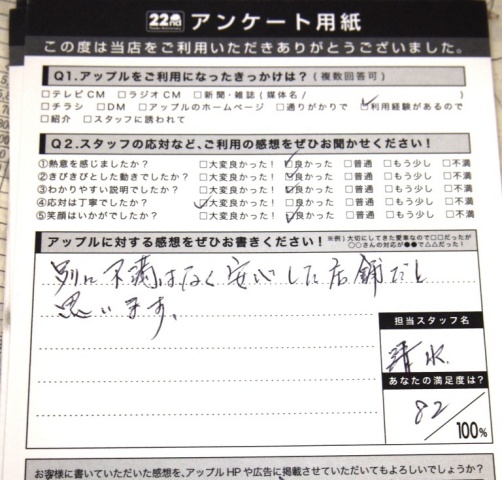 22周年 アンケート用紙
この度は当店をご利用いただきありがとうございました。
Q1.アップルをご利用になったきっかけは?(複数回答可)
□テレビCM □ラジオCM □新聞・雑誌(媒体名/ )
□チラシ □DM □アップルのホームページ □通りがかりで ☑利用経験があるので
□紹介 □スタッフに誘われて
Q2.スタッフの応対など、ご利用の感想をぜひお聞かせください!
①熱意を感じましたか? □大変良かった! ☑良かった □普通 □もう少し □不満
②きびきびとした動きでしたか? □大変良かった! ☑良かった □普通 □もう少し □不満
③わかりやすい説明でしたか? □大変良かった! ☑良かった □普通 □もう少し □不満
④応対は丁寧でしたか? ☑大変良かった! □良かった □普通 □もう少し □不満
⑤笑顔はいかがでしたか? □大変良かった! ☑良かった □普通 □もう少し □不満
アップルに対する感想をぜひお書きください!
※例)大切にしてきた愛車なので□□だったが
○○さんの対応が●●で△△だった!
別に不満はなく安心した店舗だと
思います。
担当スタッフ名
清水
あなたの満足度は?
82
100%
お客様に書いていただいた感想を、アップルHPや広告に掲載させていただいてもよろしいでしょうか?